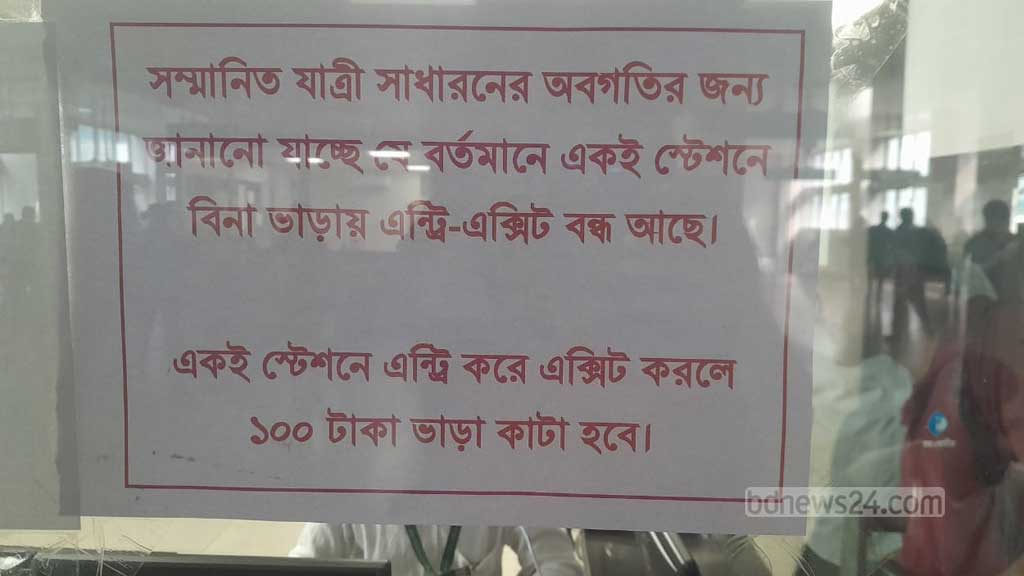 সম্মানিত যাত্রী সাধারনের অবগতির জন্য
জানানো যাচ্ছে যে বর্তমানে একই স্টেশনে
বিনা ভাড়ায় এন্ট্রি-এক্সিট বন্ধ আছে।
একই স্টেশনে এন্ট্রি করে এক্সিট করলে
১০০ টাকা ভাড়া কাটা হবে।
bdnews24.com